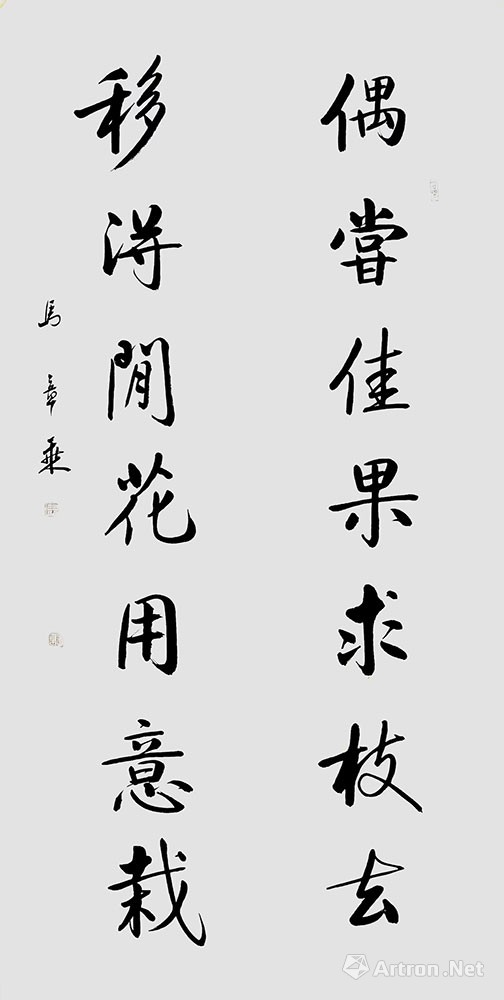 偶嘗佳果求枝去
移得閒花用意栽
馬章乘
Artron.Net